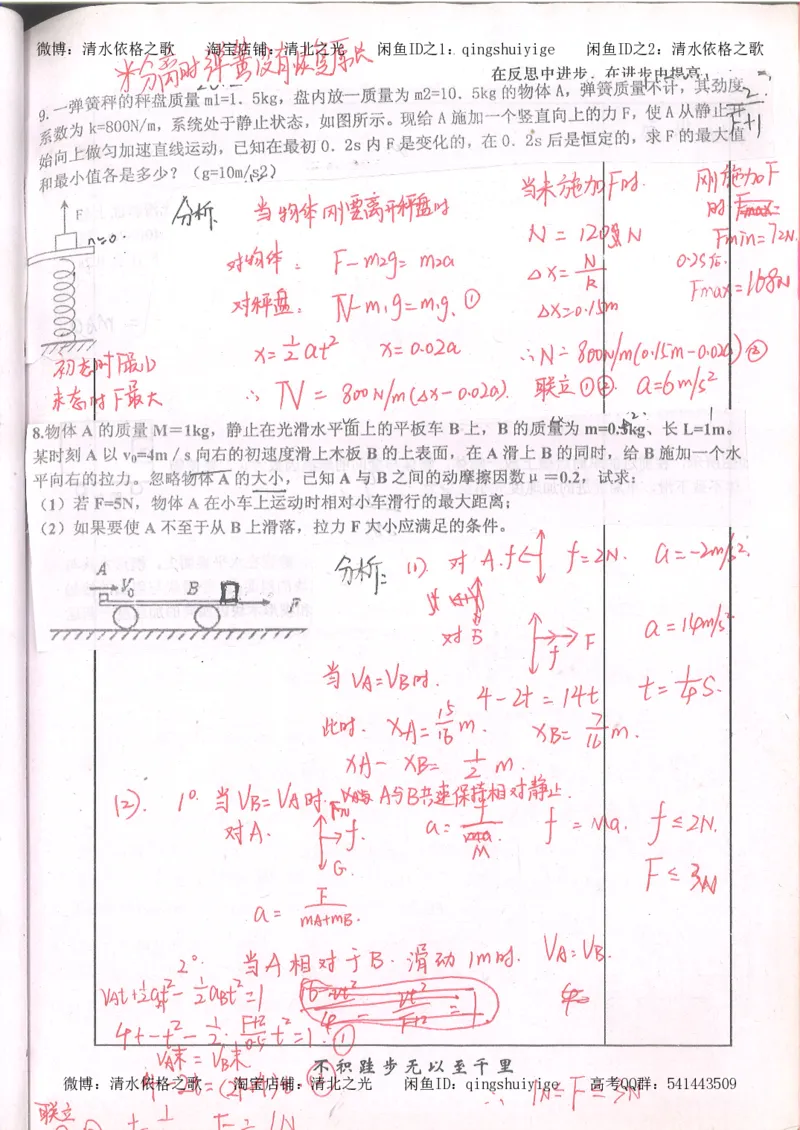 微博：清水依格之歌 淘宝店铺：清北之光 闲鱼ID之1：qingshuiyige 闲鱼ID之2：清水依格之歌
*分离时弹簧没有恢复原长
在反思中进步，在进步中提高，
9.一弹簧秤的秤盘质量 m1=1．5kg，盘内放一质量为 m2=10．5kg 的物体 A，弹簧质量不计，其劲度
系数为 k=800N/m，系统处于静止状态，如图所示。现给 A 施加一个竖直向上的力 F，使 A 从静止开
始向上做匀加速直线运动，已知在最初 0．2s 内 F 是变化的，在 0．2s 后是恒定的，求 F 的最大值
和最小值各是多少？（g=10m/s2）
F
n=0
分析：当物体刚要离开秤盘时
对物体： F-m₂g=m₂a
对秤盘： N-m₁g=m₁g. ①
x=½at² x=0.02a
∴ N = 800N/m(△x-0.02a).
当未施加F时.
N = 120N
△x= N/k
△x=0.15m
∴N=800N/m(0.15m-0.02a)②
联立①②. a=6m/s²
刚施加F
时
Fmin=72N.
0.2s后.
Fmax=168N
初态时F最小
末态时F最大
8.物体 A 的质量 M＝1kg，静止在光滑水平面上的平板车 B 上，B 的质量为 m=0.5kg、长 L=1m。
某时刻 A 以 v₀=4m／s 向右的初速度滑上木板 B 的上表面，在 A 滑上 B 的同时，给 B 施加一个水
平向右的拉力。忽略物体 A 的大小，已知 A 与 B 之间的动摩擦因数 μ＝0.2，试求：
（1）若 F=5N，物体 A 在小车上运动时相对小车滑行的最大距离；
（2）如果要使 A 不至于从 B 上滑落，拉力 F 大小应满足的条件。
A
V₀
B
F
分析： (1) 对 A. f f=2N. a=-2m/s².
对 B f F a=14m/s²
当 VA=VB时. 4-2t=14t t=¼s.
此时. XA=15/16 m. XB=7/16 m.
XA-XB=½ m.
(2). 1°. 当VB=VA时. A与B共速保持相对静止.
对A. f. G. a=f/M f=Ma. f≤2N.
F≤3N
a=F/(mA+mB).
2°. 当A相对于B.滑动1m时. VA=VB.
VAt+½at²-½aBt²=1
4t-t²-½·(F+2)/0.5 t²=1. ①
VA末=VB末
不积跬步无以至千里
微博：清水依格之歌 淘宝店铺：清北之光 闲鱼ID：qingshuiyige 高考QQ群：541443509
∴ 1N≤F≤3N
联立
F=1N